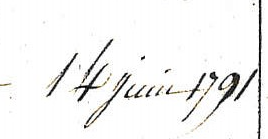 14 juin 1791